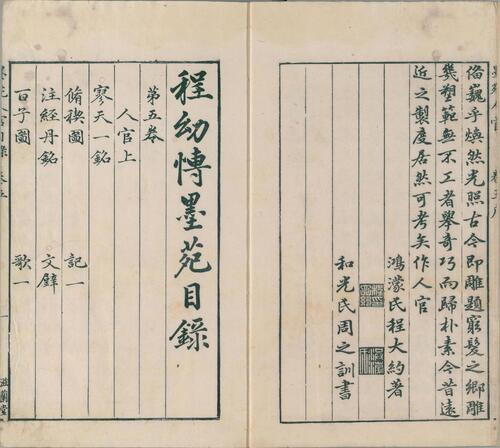 俻巍乎煥然光照古今即雕題窮髮之鄉雕
幾塑範無不工者舉奇巧而歸朴素今昔遠
近之製度居然可考矣作人官
鴻濛民程大約著
和光民周之訓書
程幼博墨苑目錄
第五卷
人官上
寥天一銘
脩禊圖 記一
注經丹銘 文
百子圖 歌一
人官目錄 卷五 一 滋蘭堂